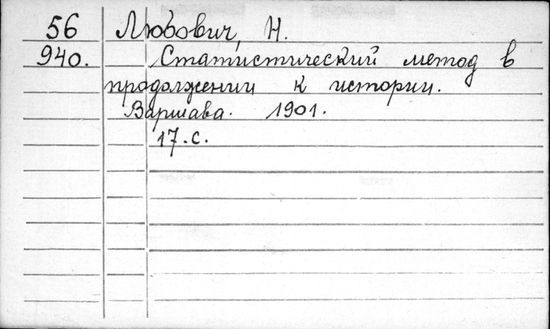 56 Любович, Н.
940. Статистический метод в
продолжении к истории.
Варшава. 1901.
17.с.